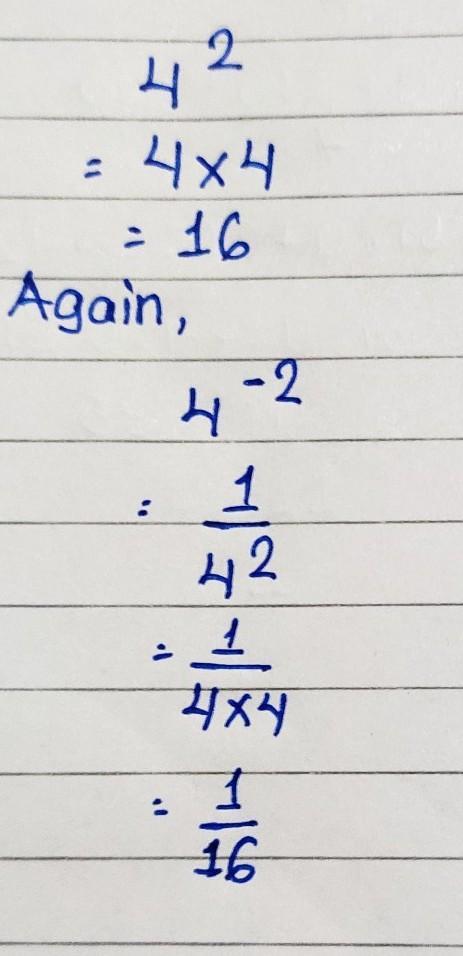 4²
= 4×4
= 16
Again,
4⁻²
= 1/4²
= 1/4×4
= 1/16